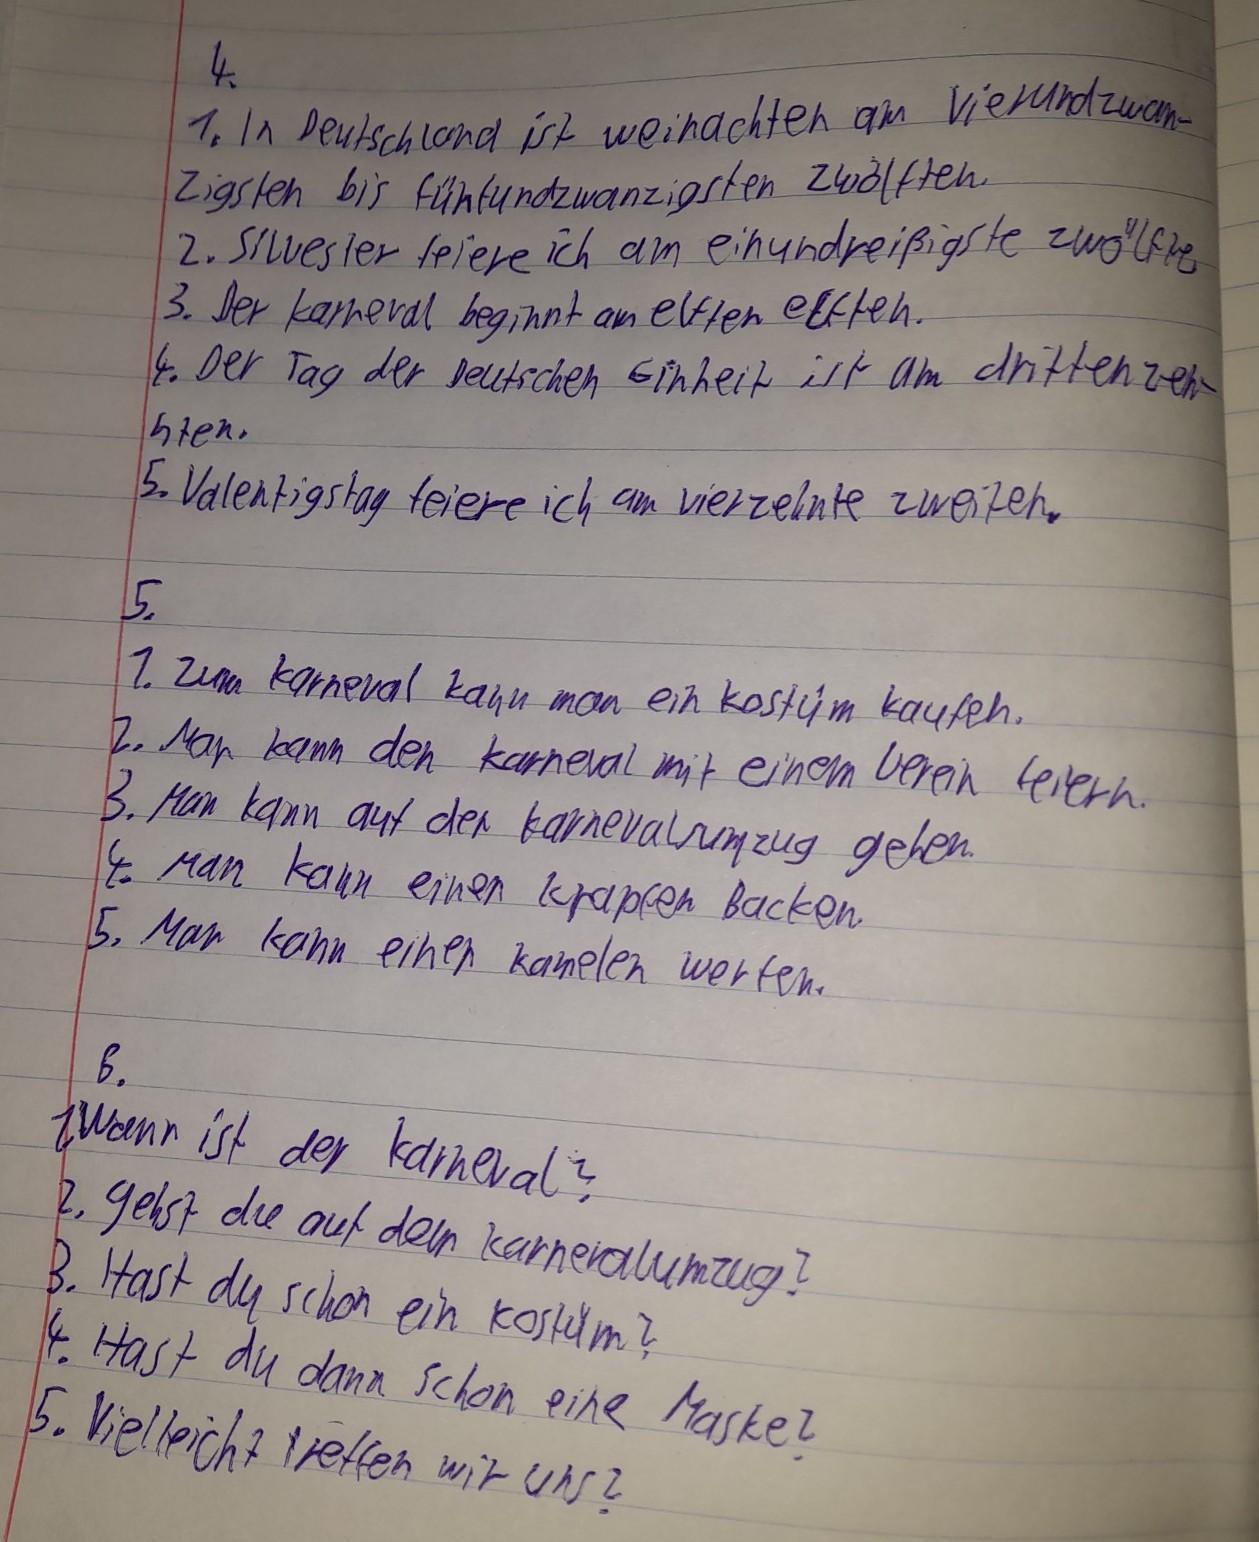 4.
1. In Deutschland ist weinachten am Vierundzwan-
zigsten bis fünfundzwanzigsten zwölften.
2. Silvester feiere ich am einundreißigste zwölfte
3. Der karneval beginnt am elften elften.
4. Der Tag der Deutschen Einheit ist am dritten zeh-
nten.
5. Valentigstag feiere ich am vierzehnte zweiten.
5.
1. Zum karneval kann man ein kostüm kaufen.
2. Man kann den karneval mit einem Verein feiern.
3. Man kann auf den karnevalsumzug gehen.
4. Man kann einen krapfen Backen.
5. Man kann einen kamelen werfen.
6.
1. Wann ist der karneval?
2. gehst du auf dem karnevalumzug?
3. Hast du schon ein kostüm?
4. Hast du dann schon eine Maske?
5. Vielleicht treffen wir uns?